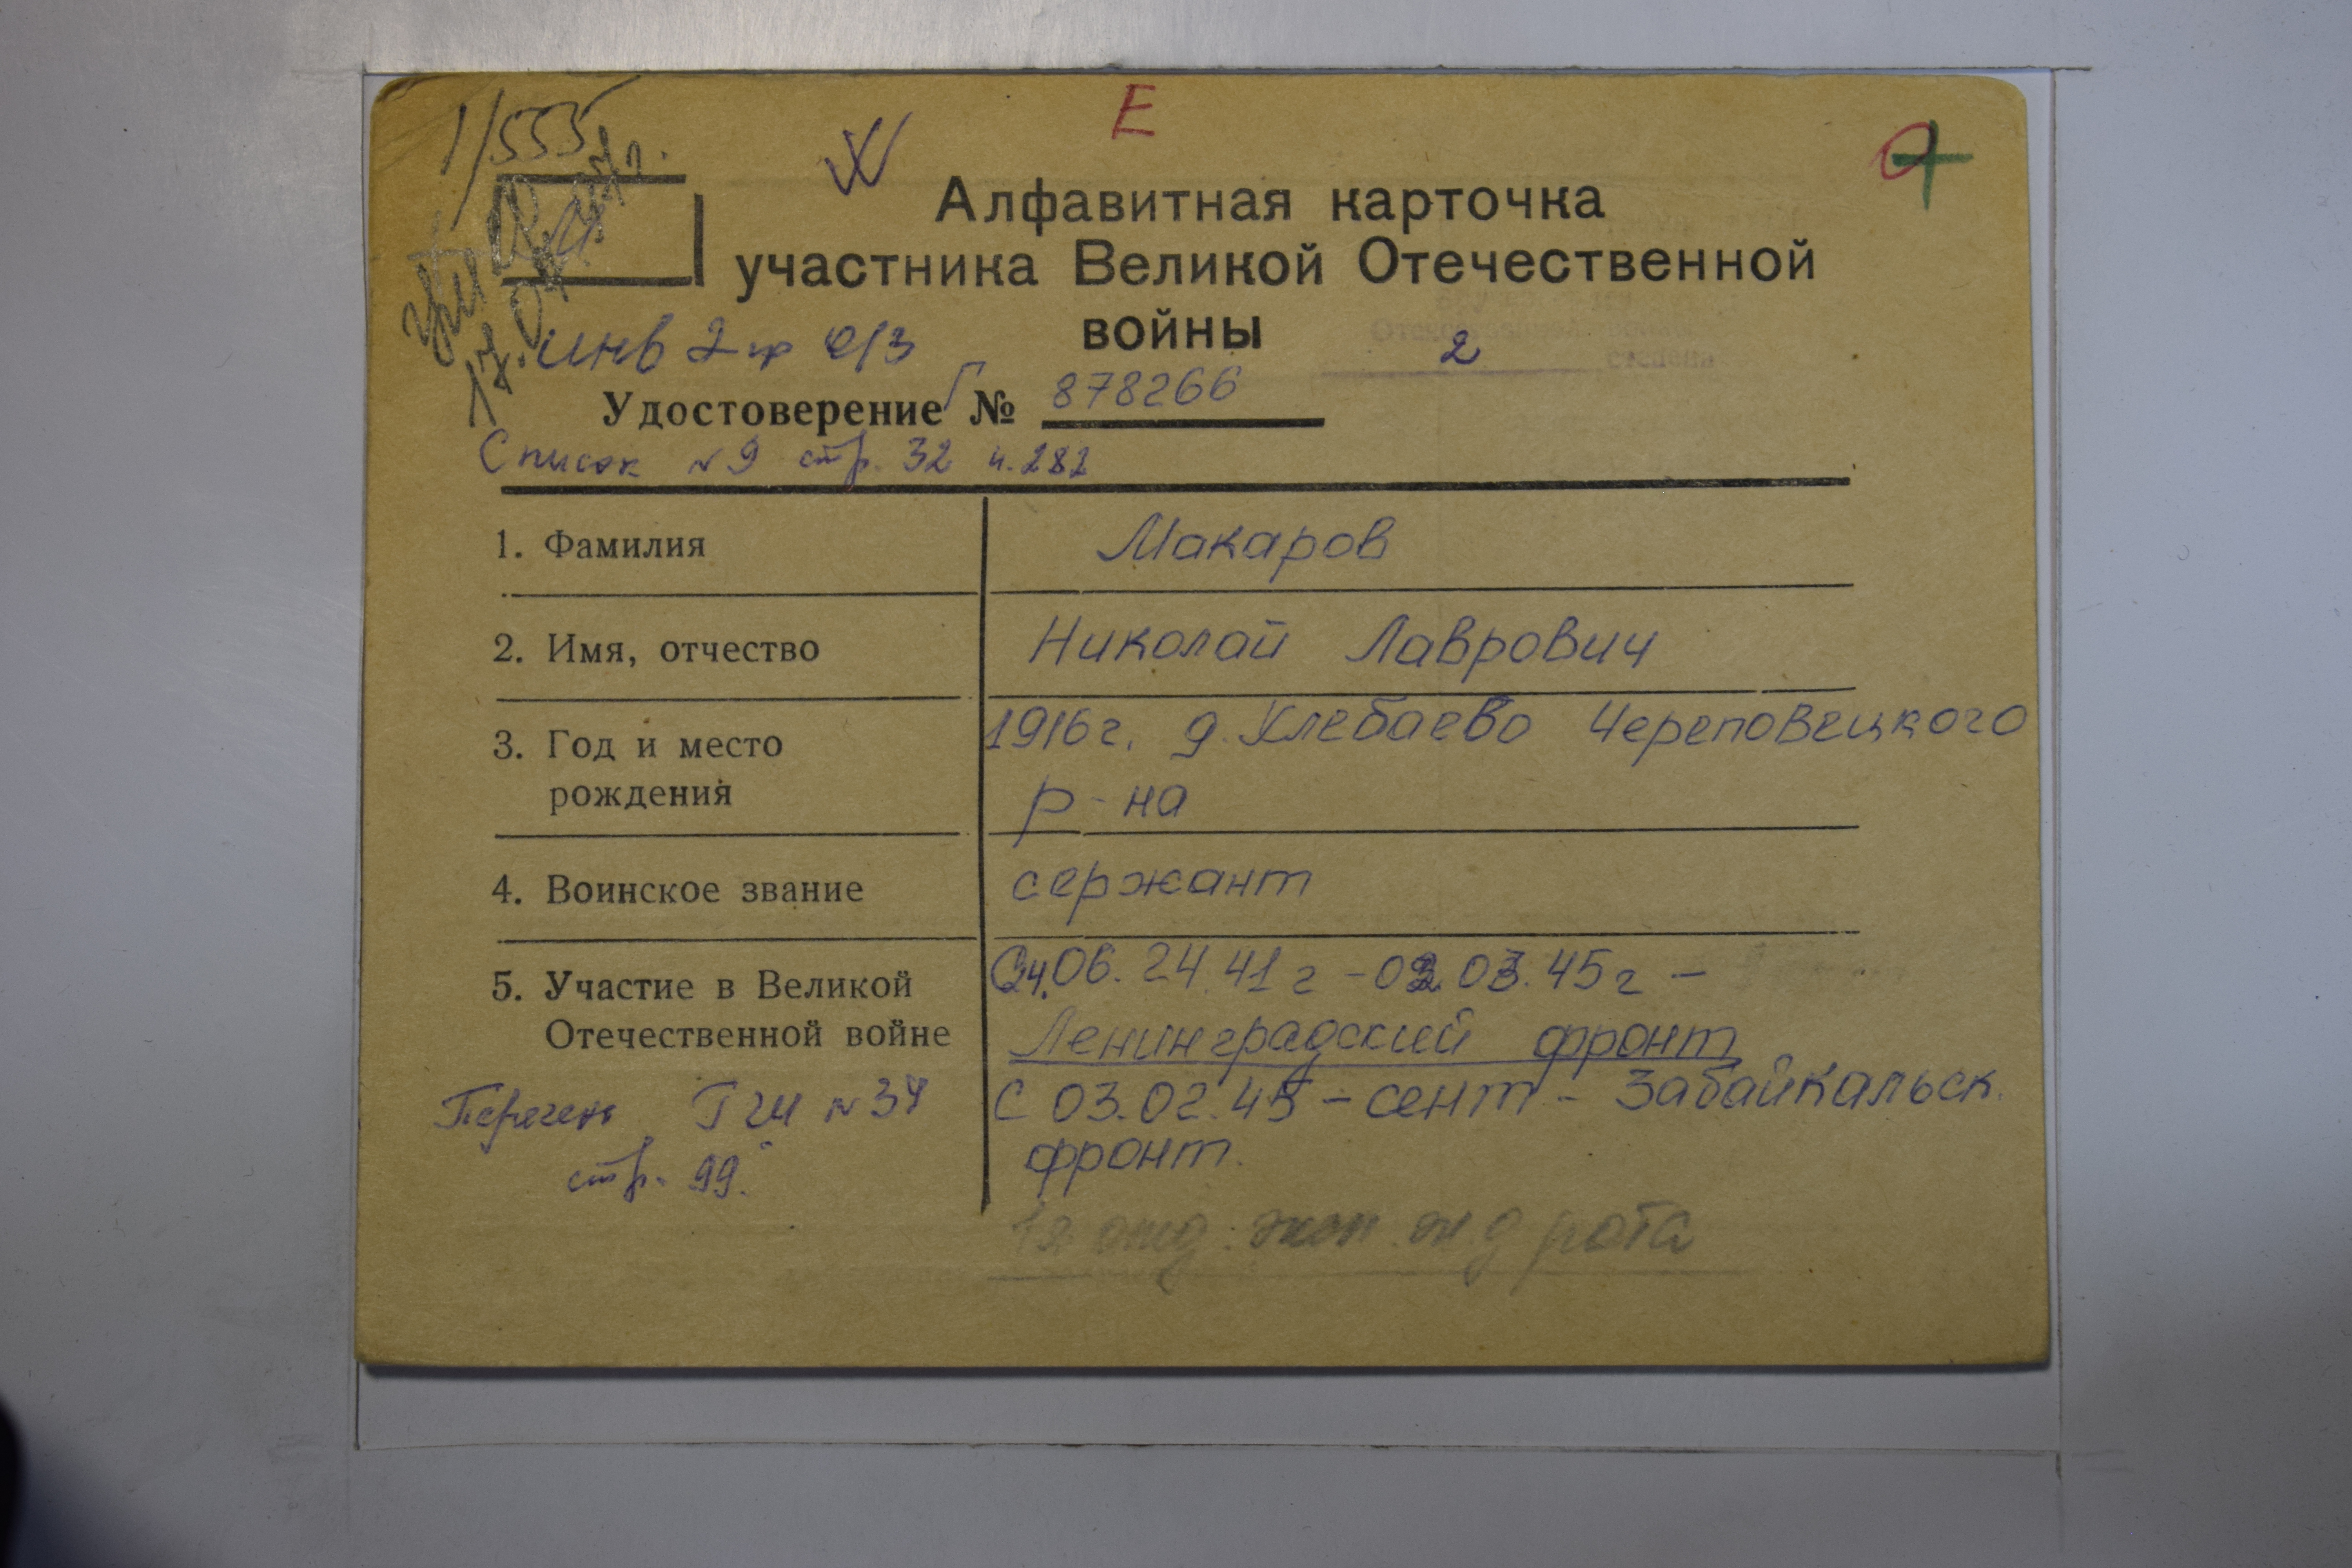 1/555
Е
Алфавитная карточка
участника Великой Отечественной
войны
инв 2 гр о/з
степени
2
Удостоверение Г № 878266
Список № 9 стр. 32 н. 282
1. Фамилия Макаров
2. Имя, отчество Николай Лаврович
3. Год и место 1916 г. д. Хлебаево Череповецкого
рождения р-на
4. Воинское звание сержант
5. Участие в Великой 24.06. 24.41 г - 02 03.45 г -
Отечественной войне Ленинградский фронт
Перечень ГШ № 34 С 03.02.45 - сент - Забайкальск.
стр. 99. фронт.
рота